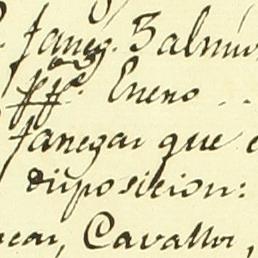 faneg. 3 almu
Enero ..
fanegas que
disposicion:
Cavallos,